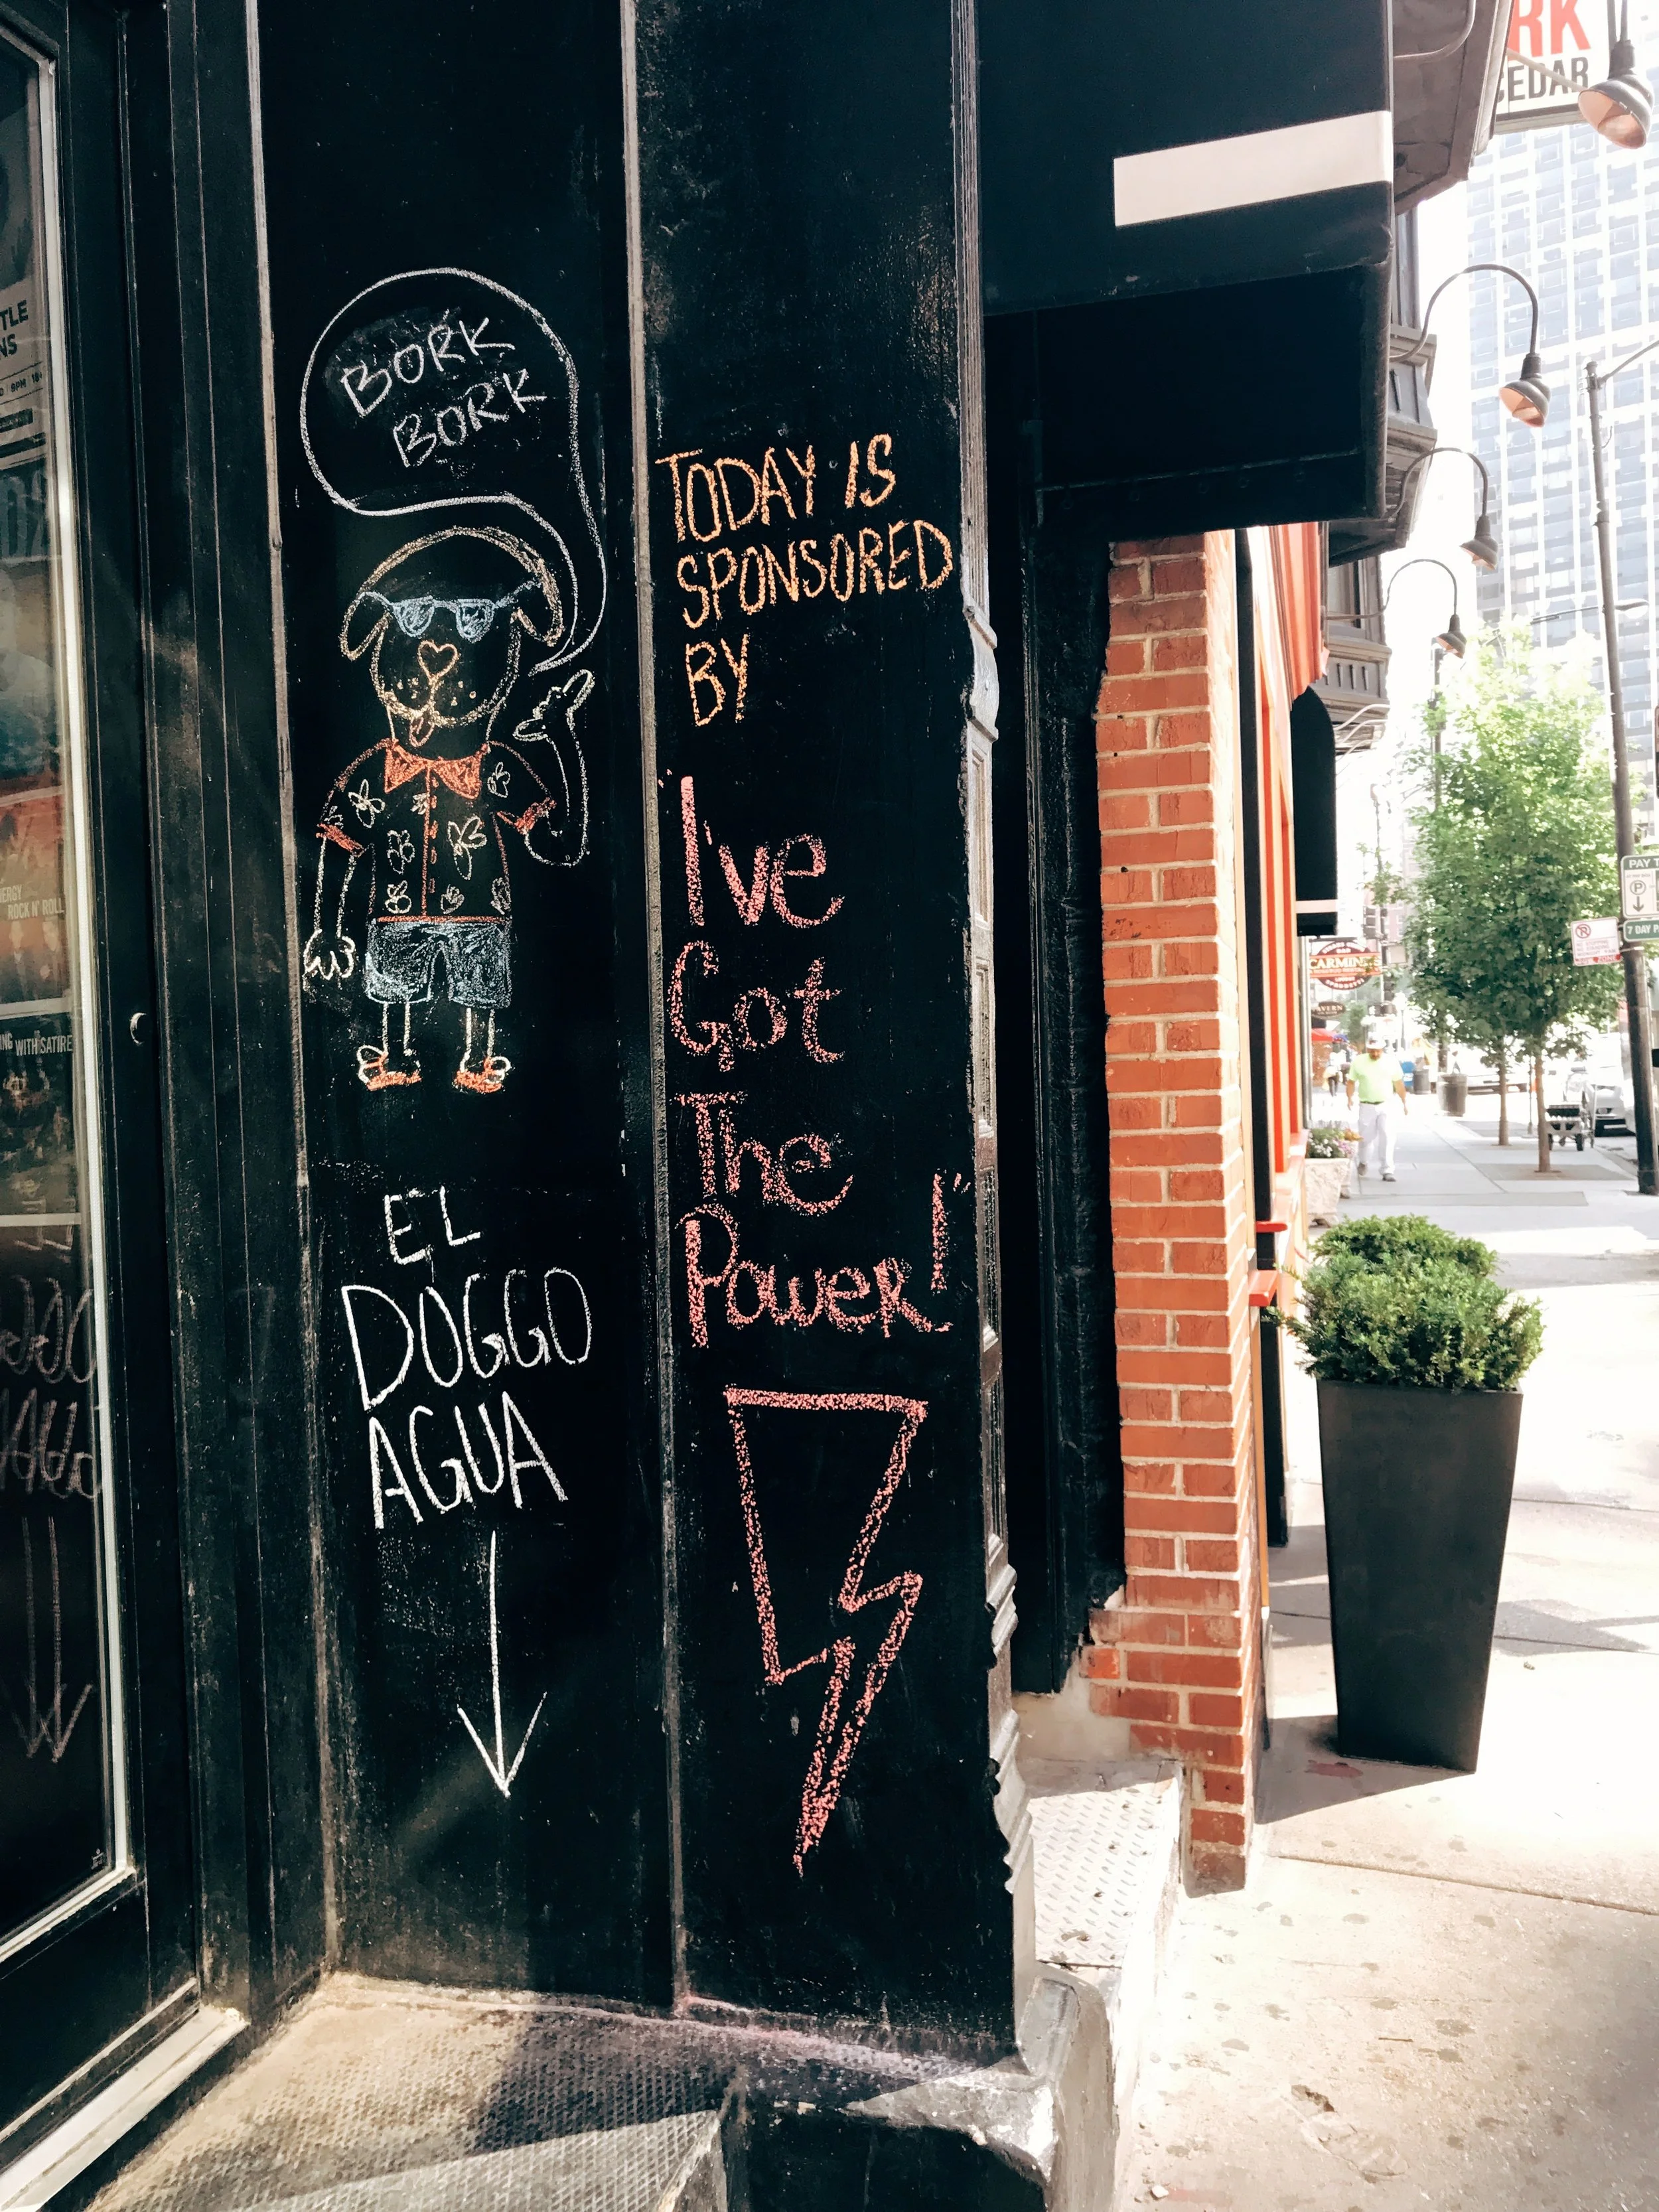 BORK
BORK
EL
DOGGO
AGUA
TODAY IS
SPONSORED
BY
I've
Got
The
Power!"
RK
CEDAR
CARMINE'S
PAY T
7 DAY P
TLE
NS
ROCK N' ROLL
WITH SATIRE